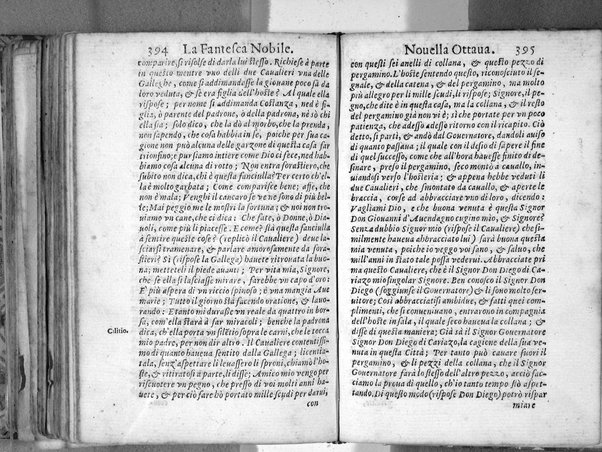 394 La Fantesca Nobile.
comparire, si risolse di darla lui stesso. Richiese à parte
in questo mentre vno delli due Caualieri vna delle
Galleghe, come si addimandasse la giouane poco fà da
loro veduta, & se era figlia dell'hoste? Al quale ella
rispose; per nome si addimanda Costanza, ned è fi-
glia, ò parente del padrone, ò della padrona, nè sò chi
ella sia; solo dico, che la dò al morbo, che la prenda,
non sapendo, che cosa habbia in se, poiche per sua ca-
gione non può alcuna delle garzone di questa casa far
trionfino; pur siamo intiere come Dio ci fece, ned hab-
biamo cosa alcuna di rotto; Non entra forastiero, che
subito non dica, chi è questa fanciulla? Per certo ch'el-
la è molto garbata; Come comparisce bene; affè, che
non è mala; Venghi il cancaro se ve ne sono di più bel-
le; Mai peggio me le mostri la fortuna; & noi non tro-
uiamo vn cane, che ci dica: Che fate, ò Donne, ò Dia-
uoli, come più li piacesse. E come? stà questa fanciulla
à sentire queste cose? (replicò il Caualiere) deue la-
sciarsi tramenare, & parlare amorosamente da fora-
stieri? Sì (rispose la Gallega) hauete ritrouata la buo-
na; metteteli il piede auanti; Per vita mia, Signore,
che se ella si lasciasse mirare, sarebbe vn capo d'oro:
E più aspera di vn riccio spinoso; è vna mangia Aue
marie; Tutto il giorno stà facendo oratione, & lauo-
rando: E tanto mi durasse vn reale da quattro in bor-
sa, com'ella starà à far miracoli; benche la padrona
Cilitio. dica, ch'ella porta vn silittio sopra le carni, che le tocca
mio padre, per non dir altro. Il Caualiere contentissi-
mo di quanto haueua sentito dalla Gallega; licentia-
tala, senz'aspettare li leuassero li sproni, chiamò l'ho-
ste, & ritiratosi à parte, li disse; Amico mio vengo per
riscuotere vn pegno, che presso di voi molti anni ha-
uete, & perciò fare hò portato mille scudi per darui,
con
Nouella Ottaua. 395
con questi sei anelli di collana, & questo pezzo di
pergamino. L'hoste sentendo questo, riconosciuto il se-
gnale, & della catena, & del pergamino, ma molto
più allegro per li mille scudi, li rispose; Signore, il pe-
gno, che dite è in questa casa, ma la collana, & il resto
del pergamino già non vi è; sì che portate per vn poco
patienza, che adesso adesso ritorno con il ricapito. Ciò
detto, si partì, & andò dal Gouernatore, dandoli auiso
di quanto passaua; il quale con il desio di sapere il fine
di quel successo, come che all'hora hauesse finito di de-
sinare, preso il pergamino, seco montò à cauallo, in-
uiandosi verso l'hosteria; & appena hebbe veduti li
due Caualieri, che smontato da cauallo, & aperte le
braccia, corse ad abbracciare vno di loro, dicendo:
Vagliami Dio, e che buona venuta è questa Signor
Don Giouanni d'Auendagno cugino mio, & Signore?
Senza dubbio Signor mio (rispose il Caualiere) che si-
milmente haueua abbracciato lui) sarà buona questa
mia venuta, poiche io veggo voi sano, & saluo, che
mill'anni in stato tale possa vederui. Abbracciate pri
ma questo Caualiere, che è il Signor Don Diego di Ca-
riazo mio singular Signore. Ben conosco il Signor Don
Diego (soggiunse il Gouernator) & li sono molto ser-
uitore; Così abbracciatisi ambidue, & fatti quei com-
plimenti, che si conueniuano, entrarono in compagnia
dell'hoste in sala, il quale seco haueua la collana; &
disse di questa maniera; Già sà il Signor Gouernatore
Signor Don Diego di Cariazo, la cagione della sua ve-
nuta in questa Città; Per tanto può cauare fuori il
pergamino, & li pezzi della collana, che il Signor
Gouernatore farà lo stesso dell'altro pezzo, acciò fac-
ciamo la proua di quello, ch'io tanto tempo stò aspet-
tando. Di questo modo (rispose Don Diego) potrò rispar
miare